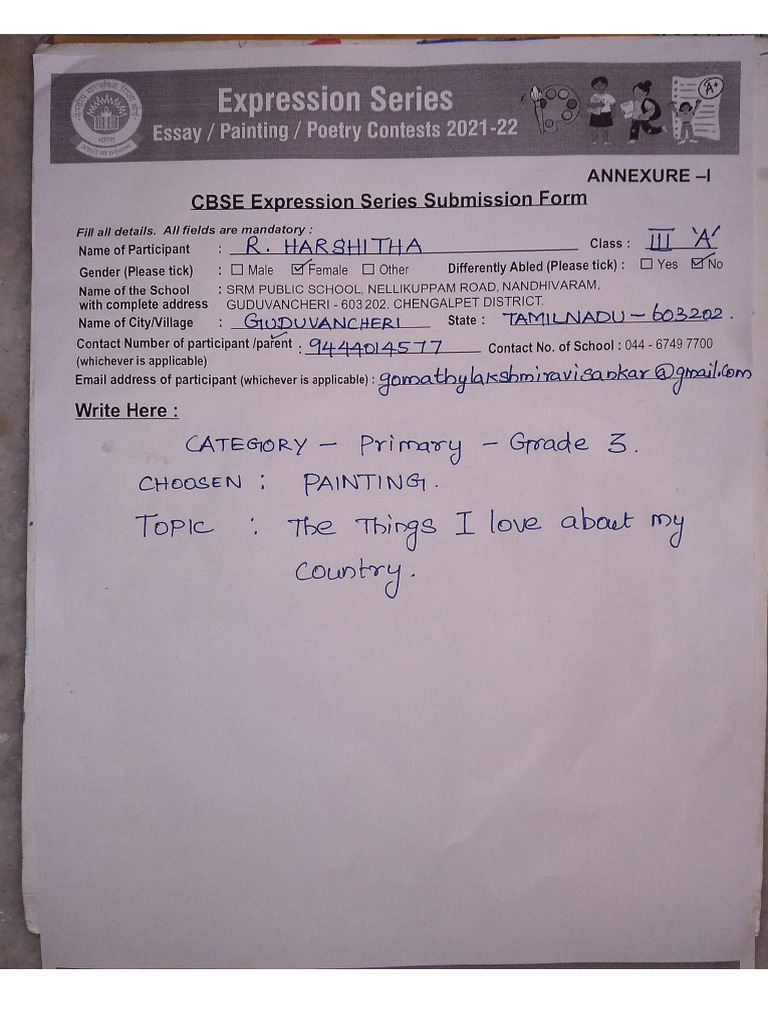 Expression Series
Essay / Painting / Poetry Contests 2021-22
A+
भारत
ANNEXURE –I
CBSE Expression Series Submission Form
Fill all details. All fields are mandatory :
Name of Participant : R. HARSHITHA Class : III 'A'
Gender (Please tick) : Male Female Other Differently Abled (Please tick) : Yes No
Name of the School : SRM PUBLIC SCHOOL, NELLIKUPPAM ROAD, NANDHIVARAM,
with complete address GUDUVANCHERI - 603 202. CHENGALPET DISTRICT.
Name of City/Village : GUDUVANCHERI State : TAMILNADU – 603202.
Contact Number of participant /parent : 9444014577 Contact No. of School : 044 - 6749 7700
(whichever is applicable)
Email address of participant (whichever is applicable) : gomathylakshmiravisankar@gmail.com
Write Here :
CATEGORY – Primary – Grade 3.
CHOOSEN : PAINTING.
TOPIC : The Things I love about my
Country.